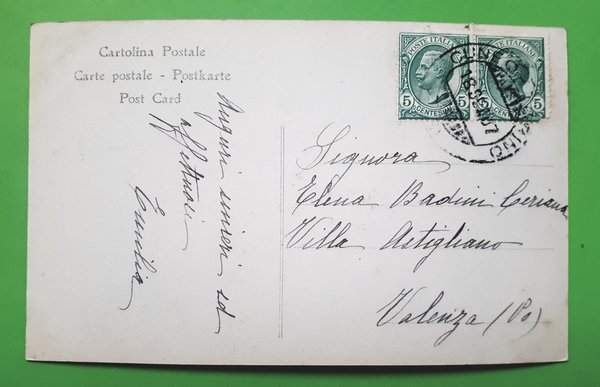 Cartolina Postale
Carte postale - Postkarte
Post Card
Auguri sinceri ed
affettuosi
Emilia
POSTE ITALIANE
5 5
CENTESIMI
POSTE ITALIANE
5 5
CENTESIMI
Signora
Elena Badini Ceriana
Villa Astigliano
Valenza (Po)